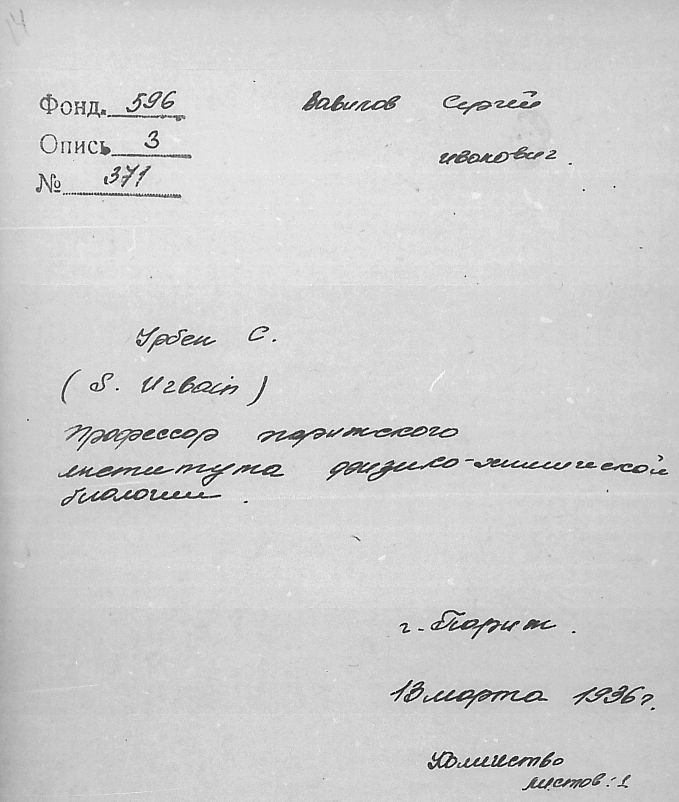 14
Фонд. 596
Опись 3
№ 371
Вавилов Сергей
Иванович.
Урбен С.
(S. Urbain)
Профессор парижского
института физико-химической
биологии.
г. Париж.
13 марта 1936 г.
Количество
листов: 1